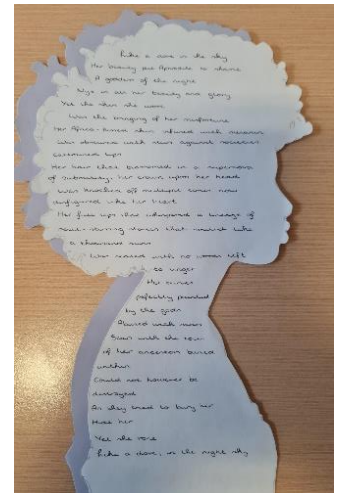 Like a dove in the sky
Her beauty put Aphrodite to shame
A goddess of the night
Nyx in all her beauty and glory
Yet the skin she wore
Was the bringing of her misfortune
Her Africa-kissed skin infused with melanin
Was drowned with slurs against societies
customed lips
Her hair that blossomed in a supernova
of, her crown upon her head
Was knocked off multiple times now
disfigured like her heart
Her full lips that whispered a lineage of
soul-stirring stories that united like
a thousand suns
Was sealed with no words left
to utter
Her curves
perfectly pounded
by the gods
Stained with
Even with the
of her ancestors buried
within
Could not however be
destroyed
As they tried to bury her
Hide her
Yet she rose
Like a dove, in the night sky